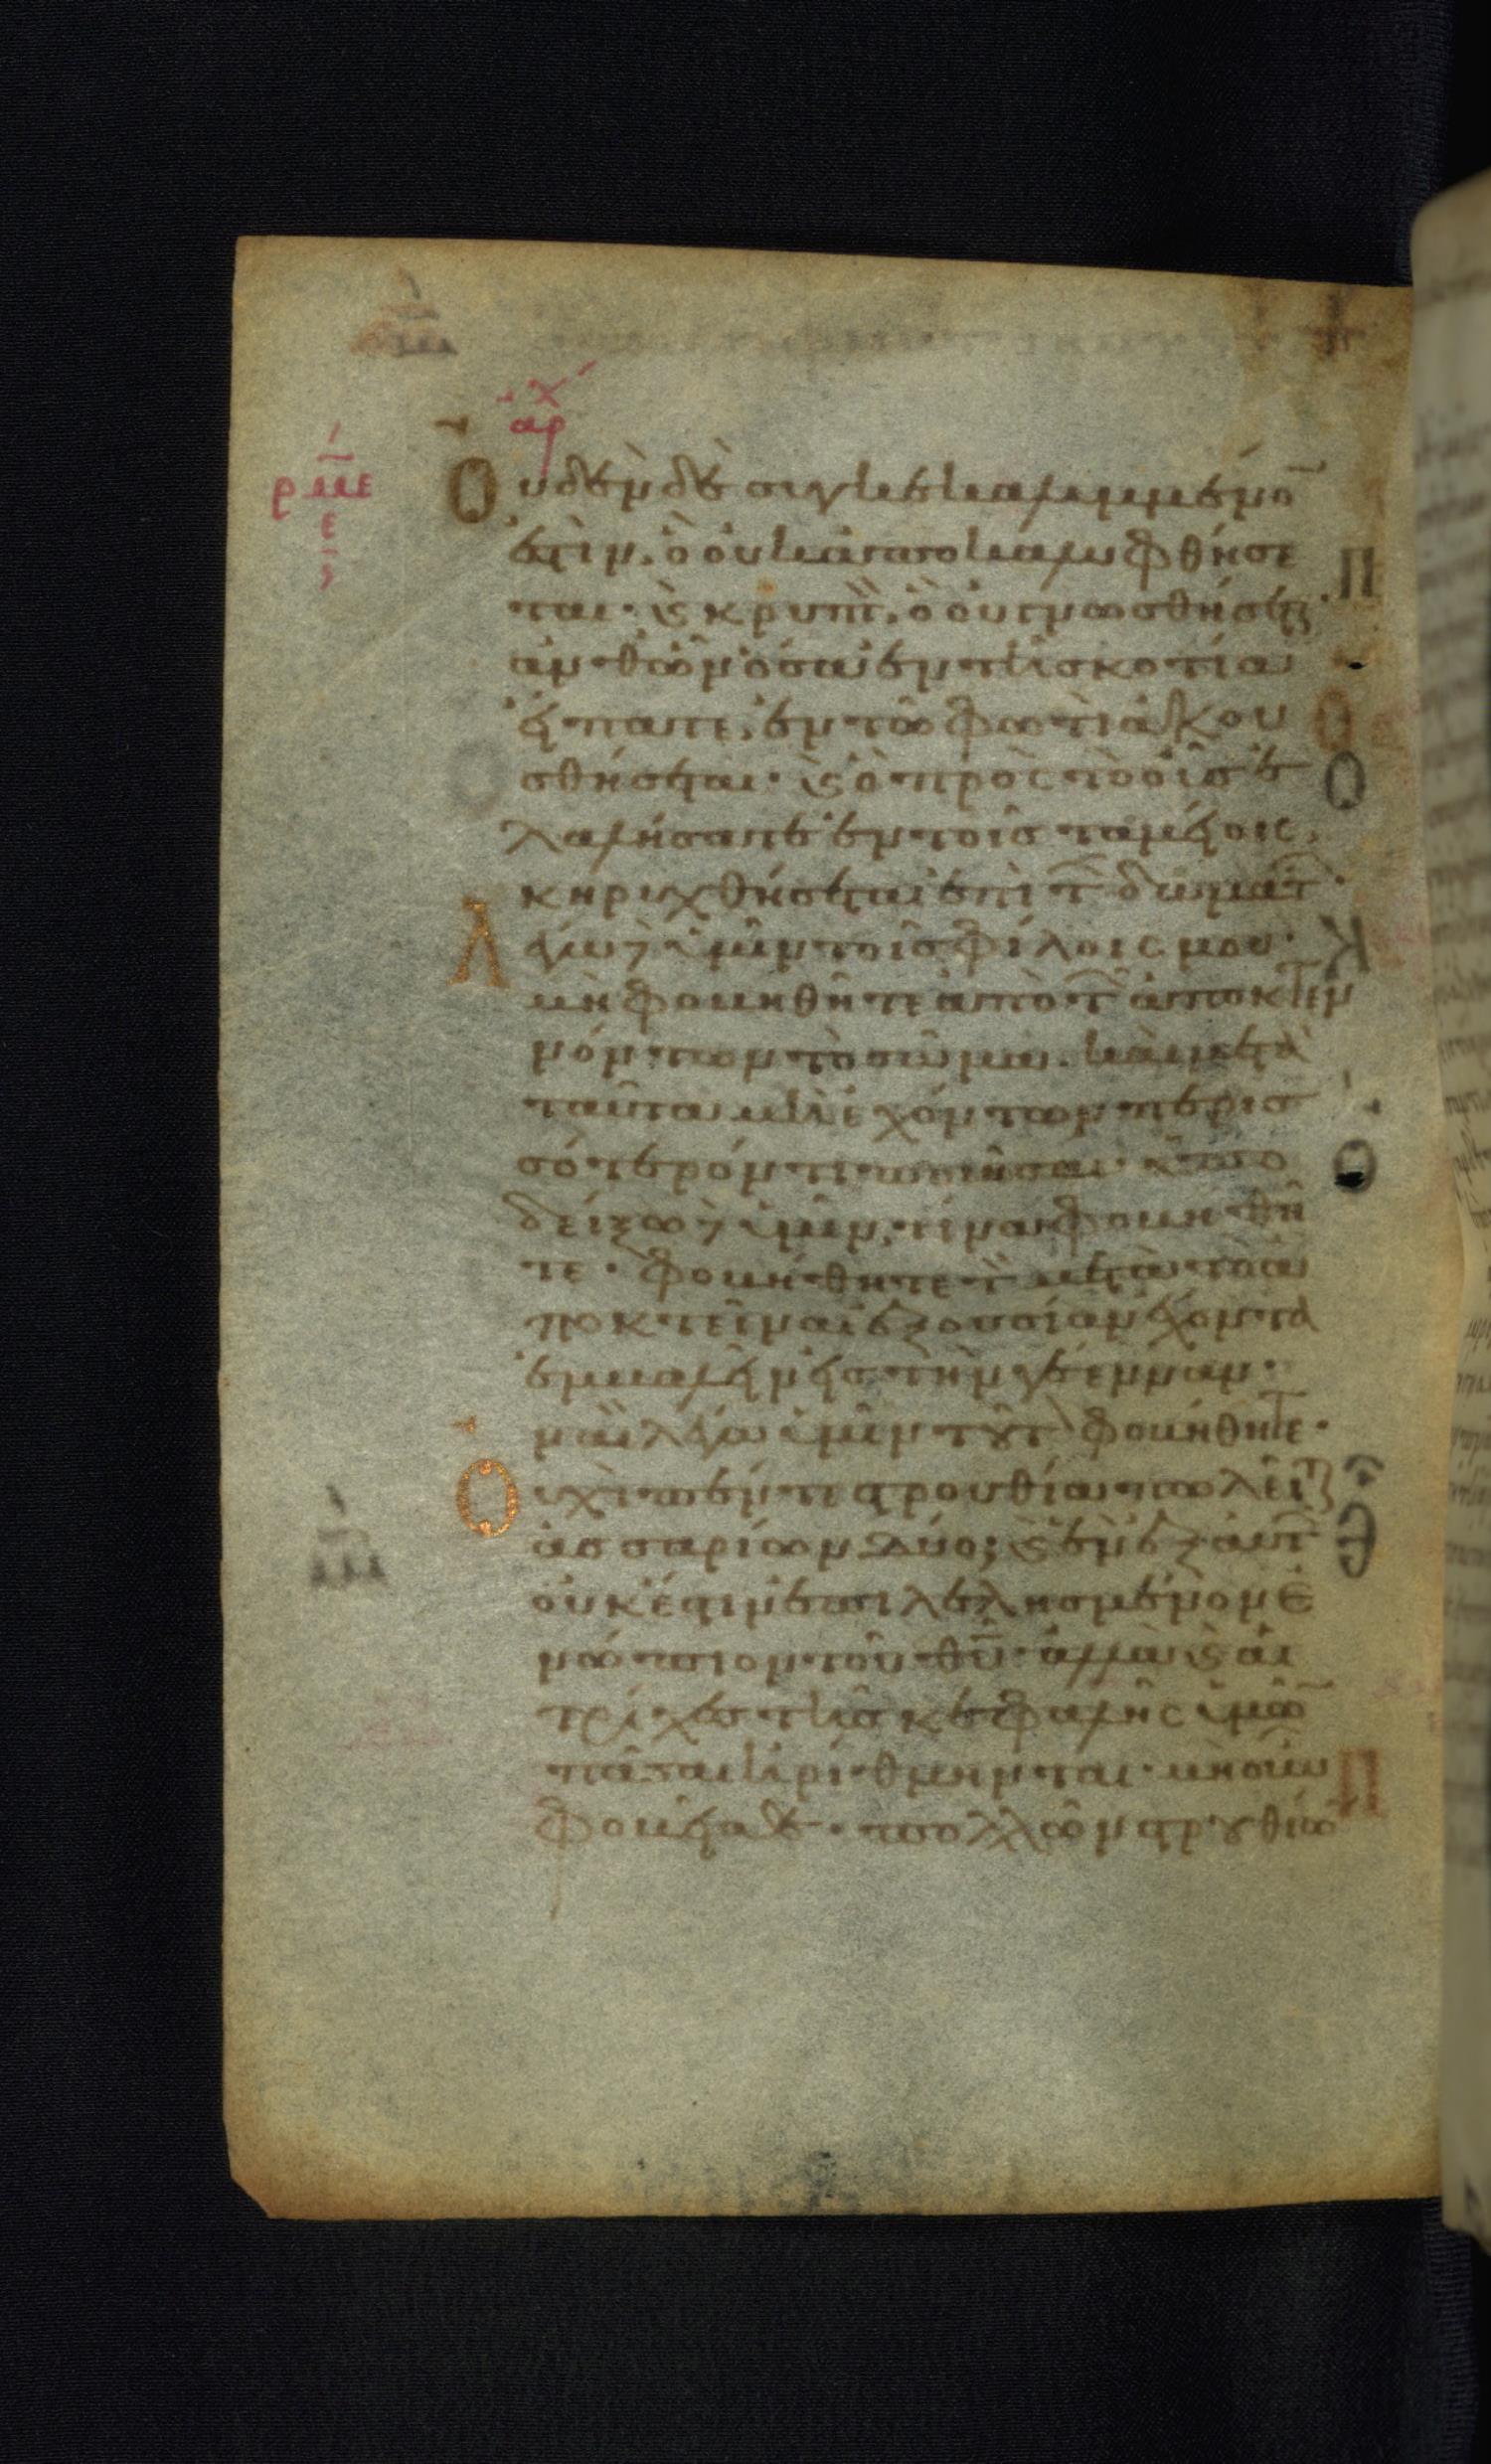 αρχ
ρμε
ε
Οὐδὲν δὲ συγκεκαλυμμένο̅
ἐστὶν, ὃ οὐκ ἀποκαλυφθήσε
ται· καὶ κρυπτ, ὃ οὐ γνωσθήσεται·
ἀνθ ὧν ὅσα ἐν τῆ σκοτία
εἴπατε, ἐν τῶ φωτὶ ἀκου
σθήσεται· καὶ ὃ πρὸς τὸ οὖς ἐ
λαλήσατε ἐν τοῖς ταμείοις,
κηρυχθήσεται ἐπὶ τ δωμάτ·
Λέγω δὲ ὑμῖν τοῖς φίλοις μου·
μὴ φοβηθῆτε ἀπὸ τ ἀποκτεν
νόντων τὸ σῶμα. καὶ μετὰ
ταῦτα μὴ ἐχόντων περισ
σότερόν τι ποιῆσαι· ὑπο
δείξω δὲ ὑμῖν, τίνα φοβηθῆ
τε· φοβήθητε τ μετὰ τὸ ἀ
ποκτεῖναι ἐξουσίαν ἔχοντα
ἐμβαλεῖν εἰς τὴν γέενναν·
ναὶ λέγω ὑμῖν τοῦτ φοβήθητε·
Οὐχὶ πέντε στρουθία πωλεῖται
ἀσσαρίων δύο; καὶ ἓν ἐξ αὐτ
οὐκ ἔστιν ἐπιλελησμένον ἐ
νώπιον τοῦ θυ̅· ἀλλὰ καὶ αἱ
τρίχες τῆς κεφαλῆς ὑμῶ̅
πᾶσαι ἠρίθμηνται· μὴ οὖν
φοβεῖσθε· πολλῶν στρουθίω̅